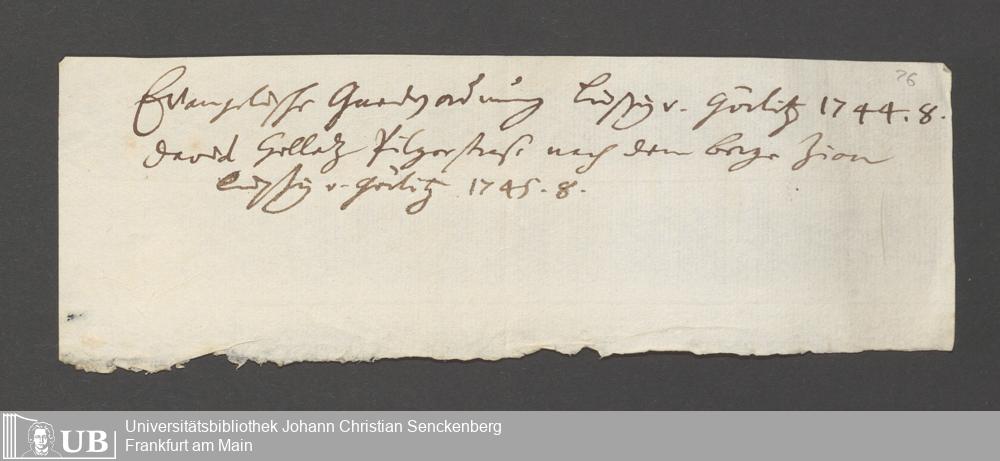 76
Evangelische Gnadenordnung Leipzig v. Görlitz 1744. 8.
David Hollatz Pilgerstraße nach dem berge Zion
Leipzig v. Görlitz 1745. 8.
UB
Universitätsbibliothek Johann Christian Senckenberg
Frankfurt am Main